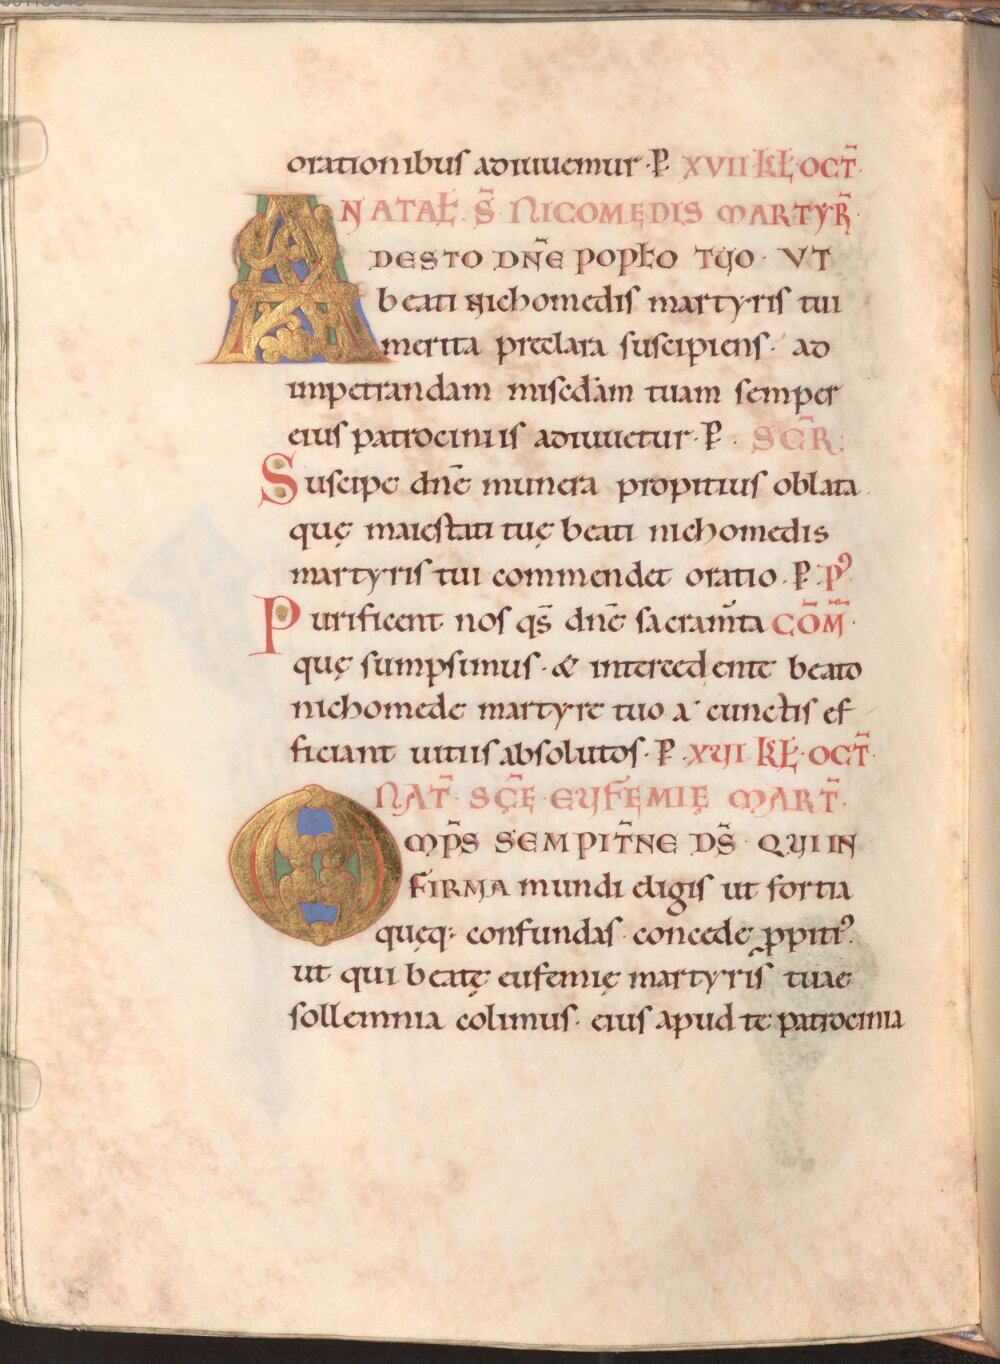 orationibus adiuuemur · P̄ XVII · KŁ · OCT̄ ·
NATAŁ · S̄ · NICOMEDIS MARTYR̄ ·
ADESTO DÑE POPŁO TUO · VT
beati nichomedis martyris tui
merita preclara suscipiens · ad
impetrandam misedam tuam semper
eius patrociniis adiuuetur · P̄ · SCR̄ :
Suscipe dñe munera propitius oblata ·
quę maiestati tuę beati nichomedis
martyris tui commendet oratio · P̄ · Pꝰ
Purificent nos qs̄ dñe sacram̄ta CŌM̄ ·
quę sumpsimus · & intercedente beato
nichomede martyre tuo a cunctis ef
ficiant uitiis absolutos · P̄ · XVI · KŁ · OCT̄ ·
NAT̄ · SC̄Ę · EUFEMIĘ MART̄ ·
OMP̄S SEMPIT̄NE DS̄ · QUI IN
FIRMA mundi eligis ut fortia
quęq: confundas · concede ꝓpitiꝰ ·
ut qui beatę eufemię martyris tuae
sollemnia colimus · eius apud te patrocinia